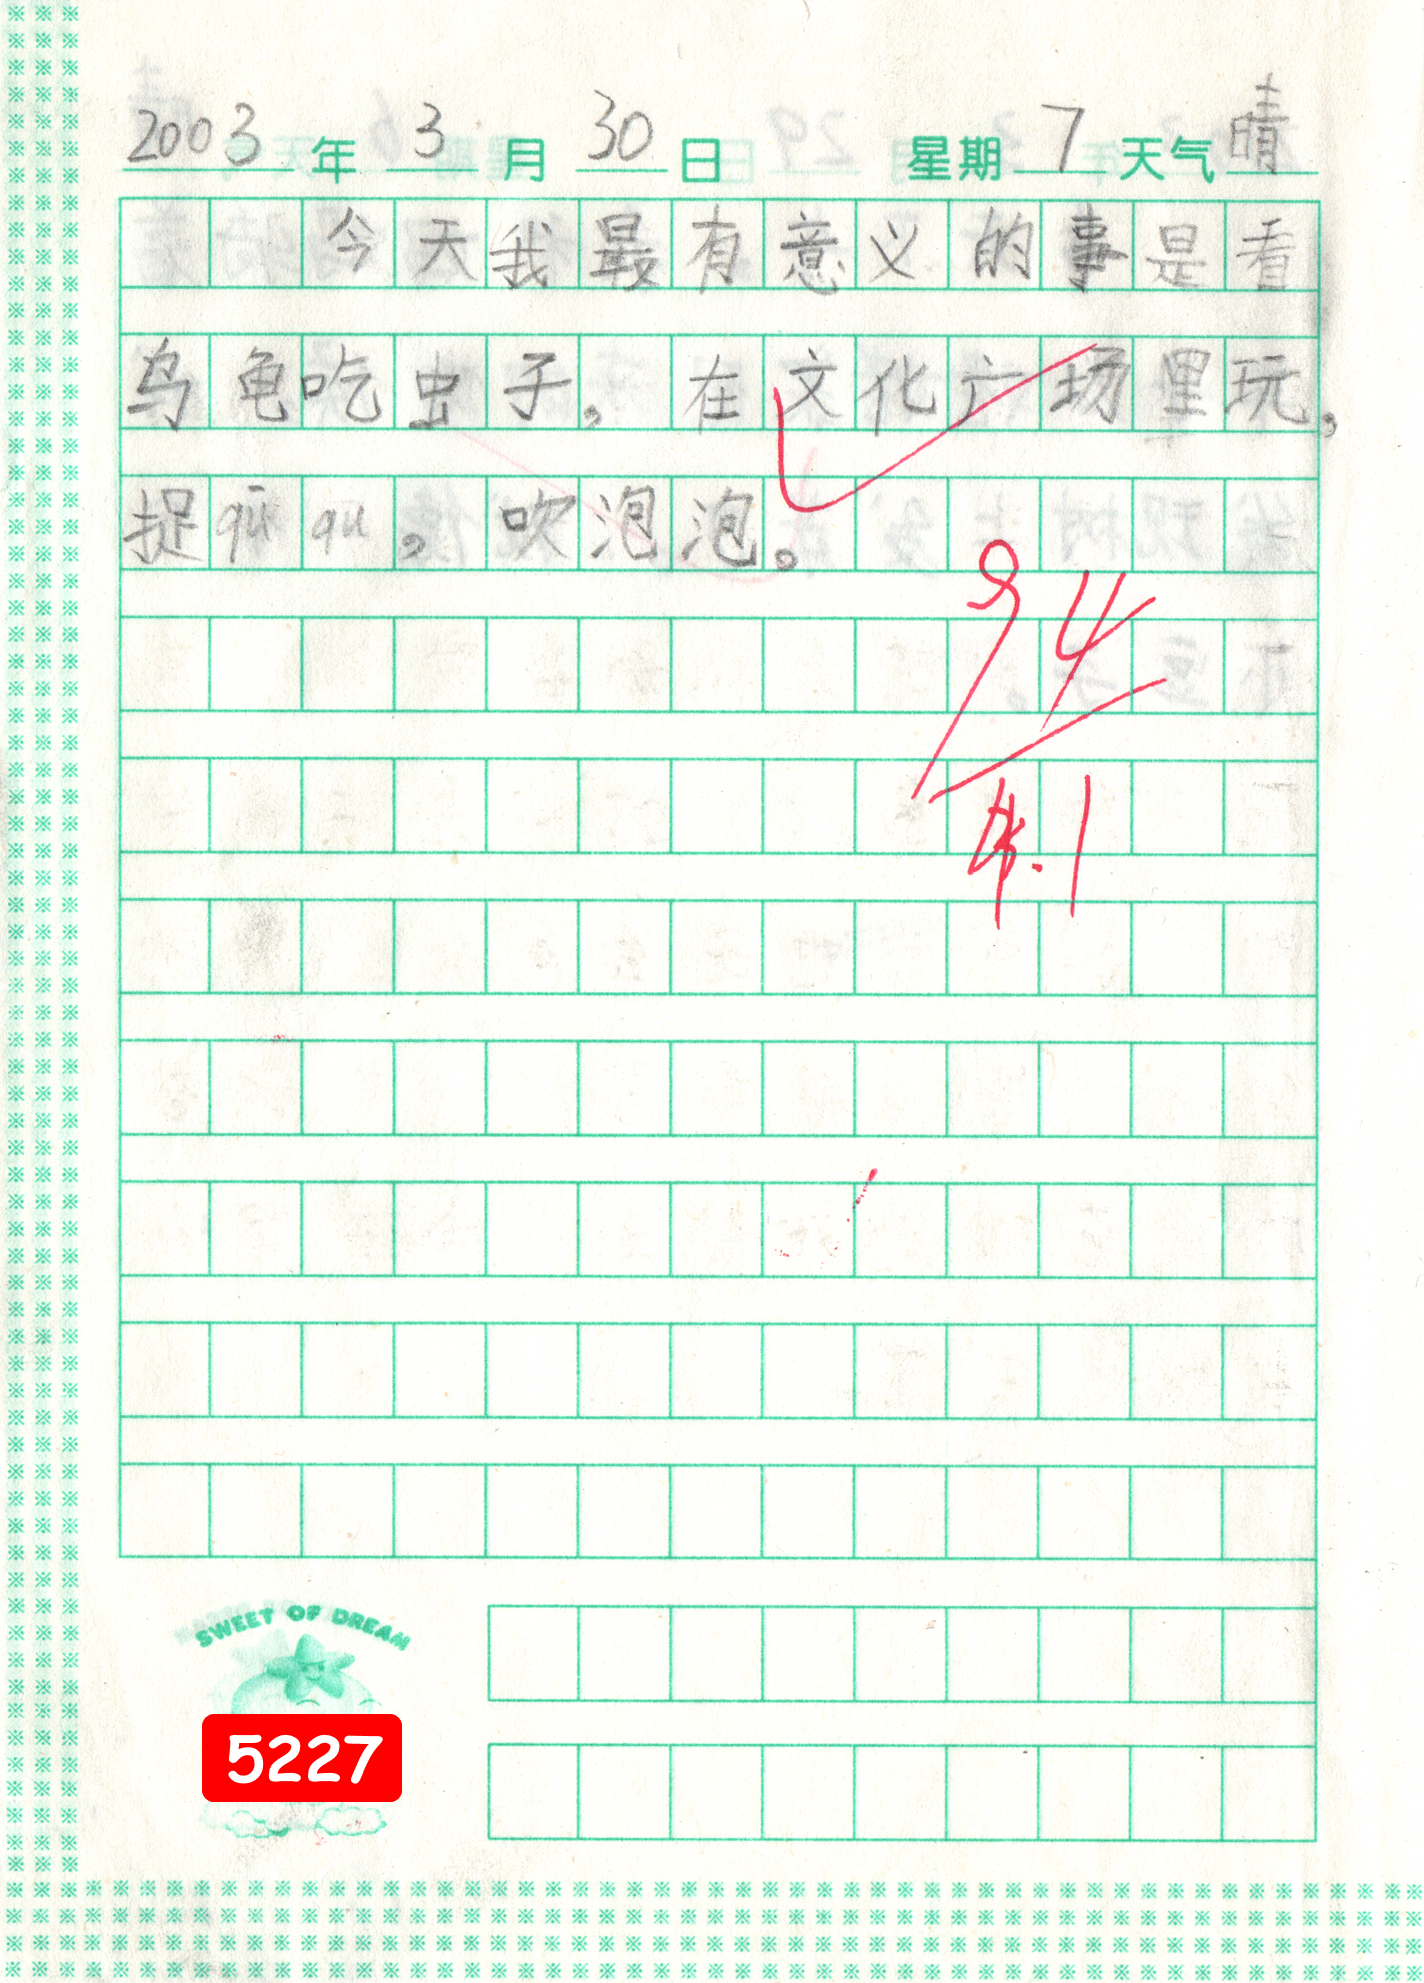 2003年3月30日 星期7天气晴
今天我最有意义的事是看
乌龟吃虫子，在文化广场里玩，
捉qū qu，吹泡泡。
94
4.1
SWEET OF DREAM
5227